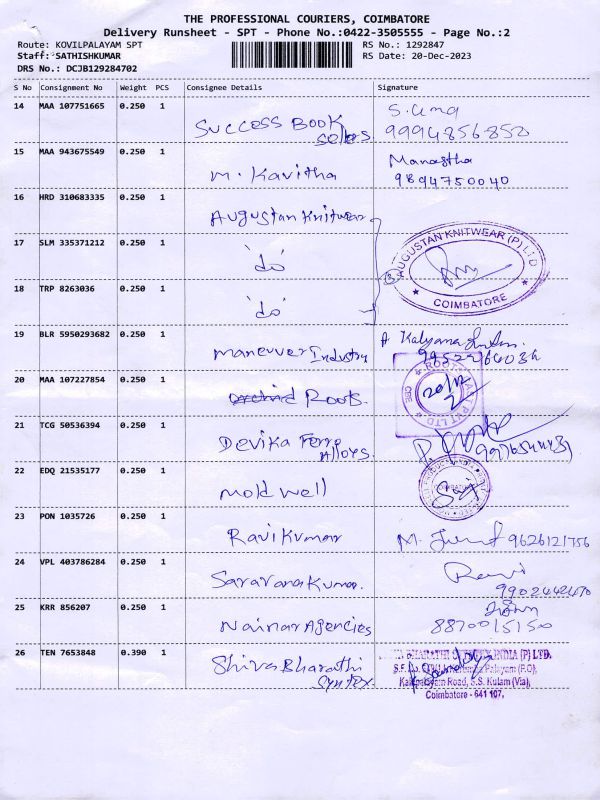 THE PROFESSIONAL COURIERS, COIMBATORE
Delivery Runsheet - SPT - Phone No.:0422-3505555 - Page No.:2
Route: KOVILPALAYAM SPT
RS No.: 1292847
Staff: SATHISHKUMAR
RS Date: 20-Dec-2023
DRS No.: DCJB129284702
S No Consignment No Weight PCS Consignee Details Signature
14 MAA 107751665 0.250 1 Success Book S. Uma
Seles 9994856850
15 MAA 943675549 0.250 1 M. Kavitha
9894750040
16 HRD 310683335 0.250 1 Augustan Knitwear
17 SLM 335371212 0.250 1 'do'
AUGUSTAN KNITWEAR (P) LTD
COIMBATORE
18 TRP 8263036 0.250 1 'do'
19 BLR 5950293682 0.250 1 Maneuver Industry
20 MAA 107227854 0.250 1 Roots
20/12
21 TCG 50536394 0.250 1 Devika Ferro
Alloys
22 EDQ 21535177 0.250 1 Mold well
23 PON 1035726 0.250 1 Ravi Kumar 9626121756
24 VPL 403786284 0.250 1 Saravana Kumar. Ravi
25 KRR 856207 0.250 1 Nainar Agencies
8870015150
26 TEN 7653848 0.390 1 Shiva Bharathi
Syntex.
INDIA (P) LTD.
Road, S.S. Kulam (Via),
Coimbatore - 641 107.